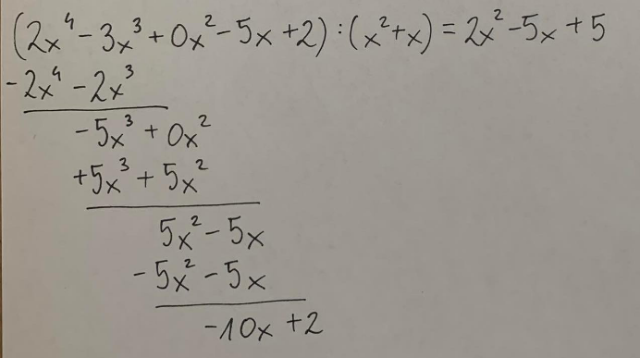 (2x⁴ - 3x³ + 0x² - 5x + 2) : (x² + x) = 2x² - 5x + 5
- 2x⁴ - 2x³
- 5x³ + 0x²
+ 5x³ + 5x²
5x² - 5x
- 5x² - 5x
- 10x + 2